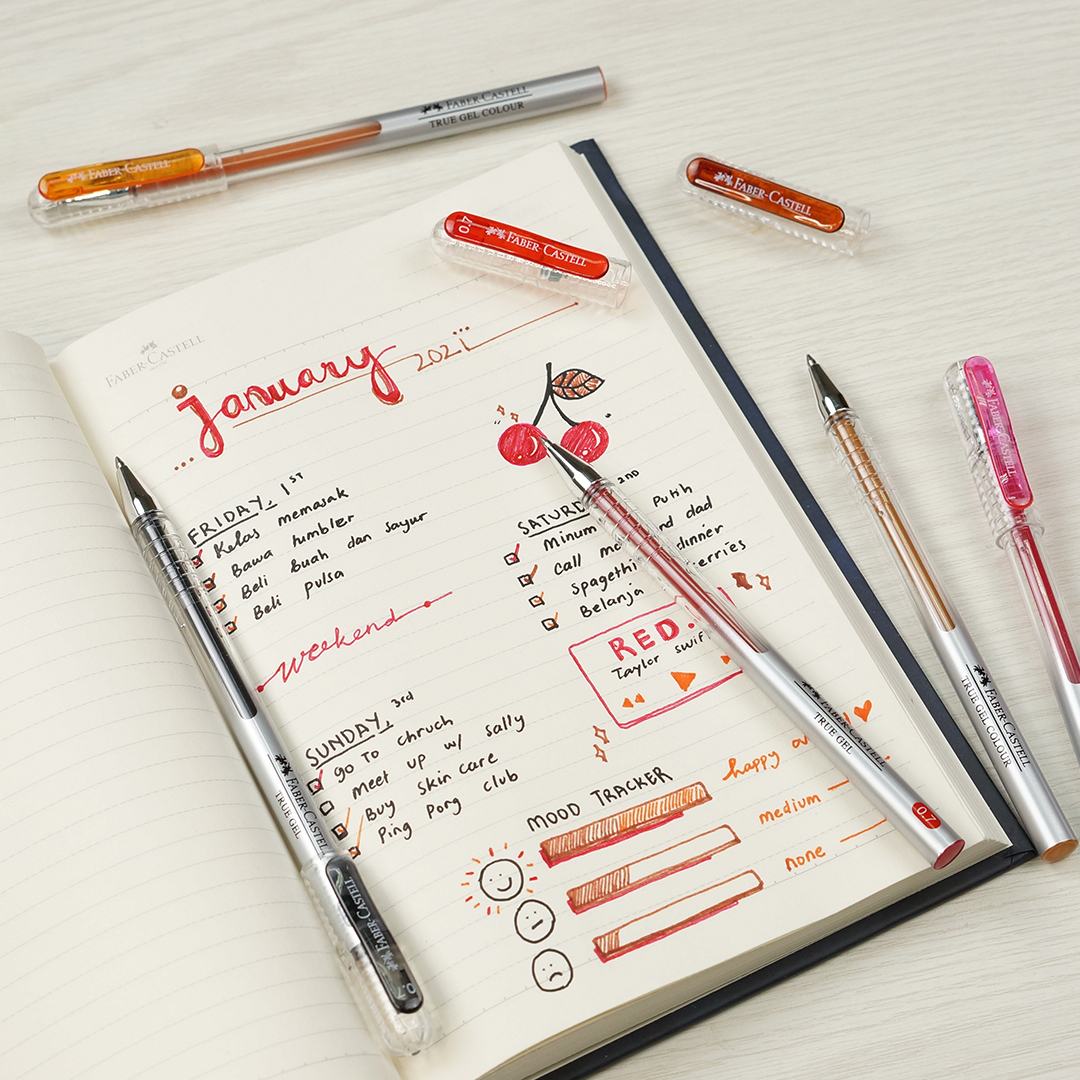 FABER-CASTELL
TRUE GEL COLOUR
FABER-CASTELL
FABER-CASTELL
0.7 FABER-CASTELL
FABER-CASTELL
january 2021
FRIDAY, 1ST
Kelas memasak
Bawa tumbler
Beli Buah dan sayur
Beli pulsa
weekend
SUNDAY, 3rd
go to chruch
meet up w/ sally
Buy skin care
Ping pong club
2nd
Minum Putih
Call dad
dinner
Belanja
RED.
Taylor
MOOD TRACKER
happy
medium
none
FABER-CASTELL
TRUE GEL
FABER-CASTELL
0.7
FABER-CASTELL
TRUE GEL
0.7
FABER-CASTELL
TRUE GEL COLOUR
FABER-CASTELL